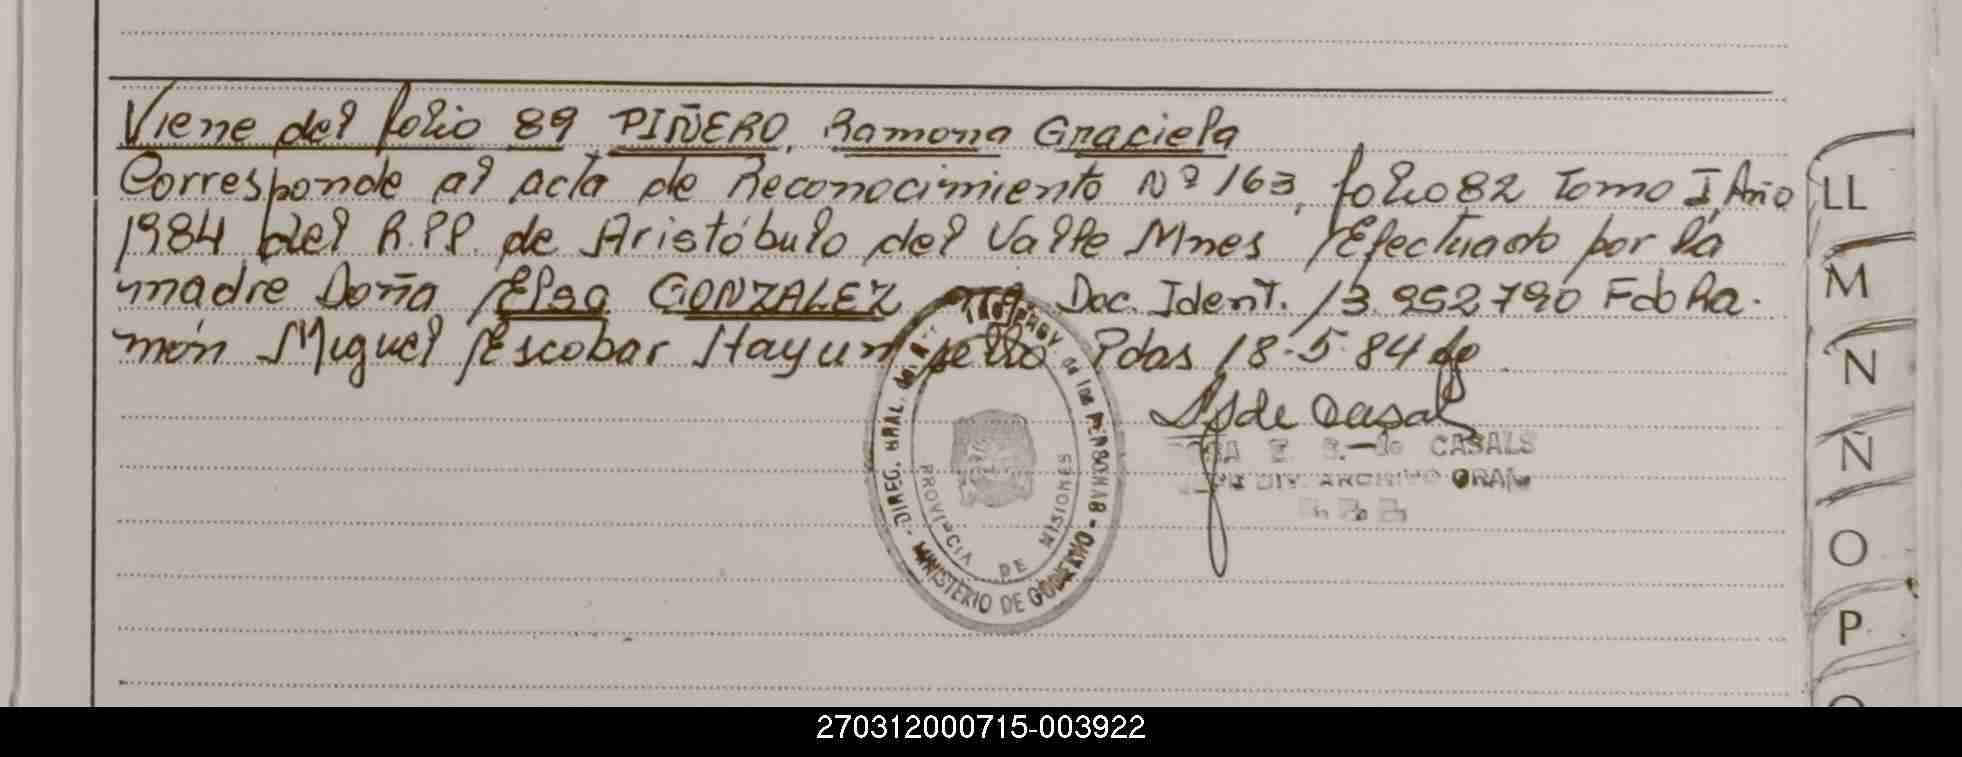 Viene del folio 89 PIÑERO, Ramona Graciela
Corresponde al acta de Reconocimiento Nº 163, folio 82 Tomo I, Año
1984 del R.PP. de Aristóbulo del Valle Mnes Efectuado por la
madre Doña Elsa GONZALEZ Doc. Ident. 13.952790 Fdo Ra-
món Miguel Escobar Hay un sello Pdas 18-5-84
de Casals
CASALS
DIV. ARCHIVO GRAL
DIREC. GRAL. de las PERSONAS - MINISTERIO DE GOBIERNO
PROVINCIA DE MISIONES
LL
M
N
Ñ
O
P
270312000715-003922